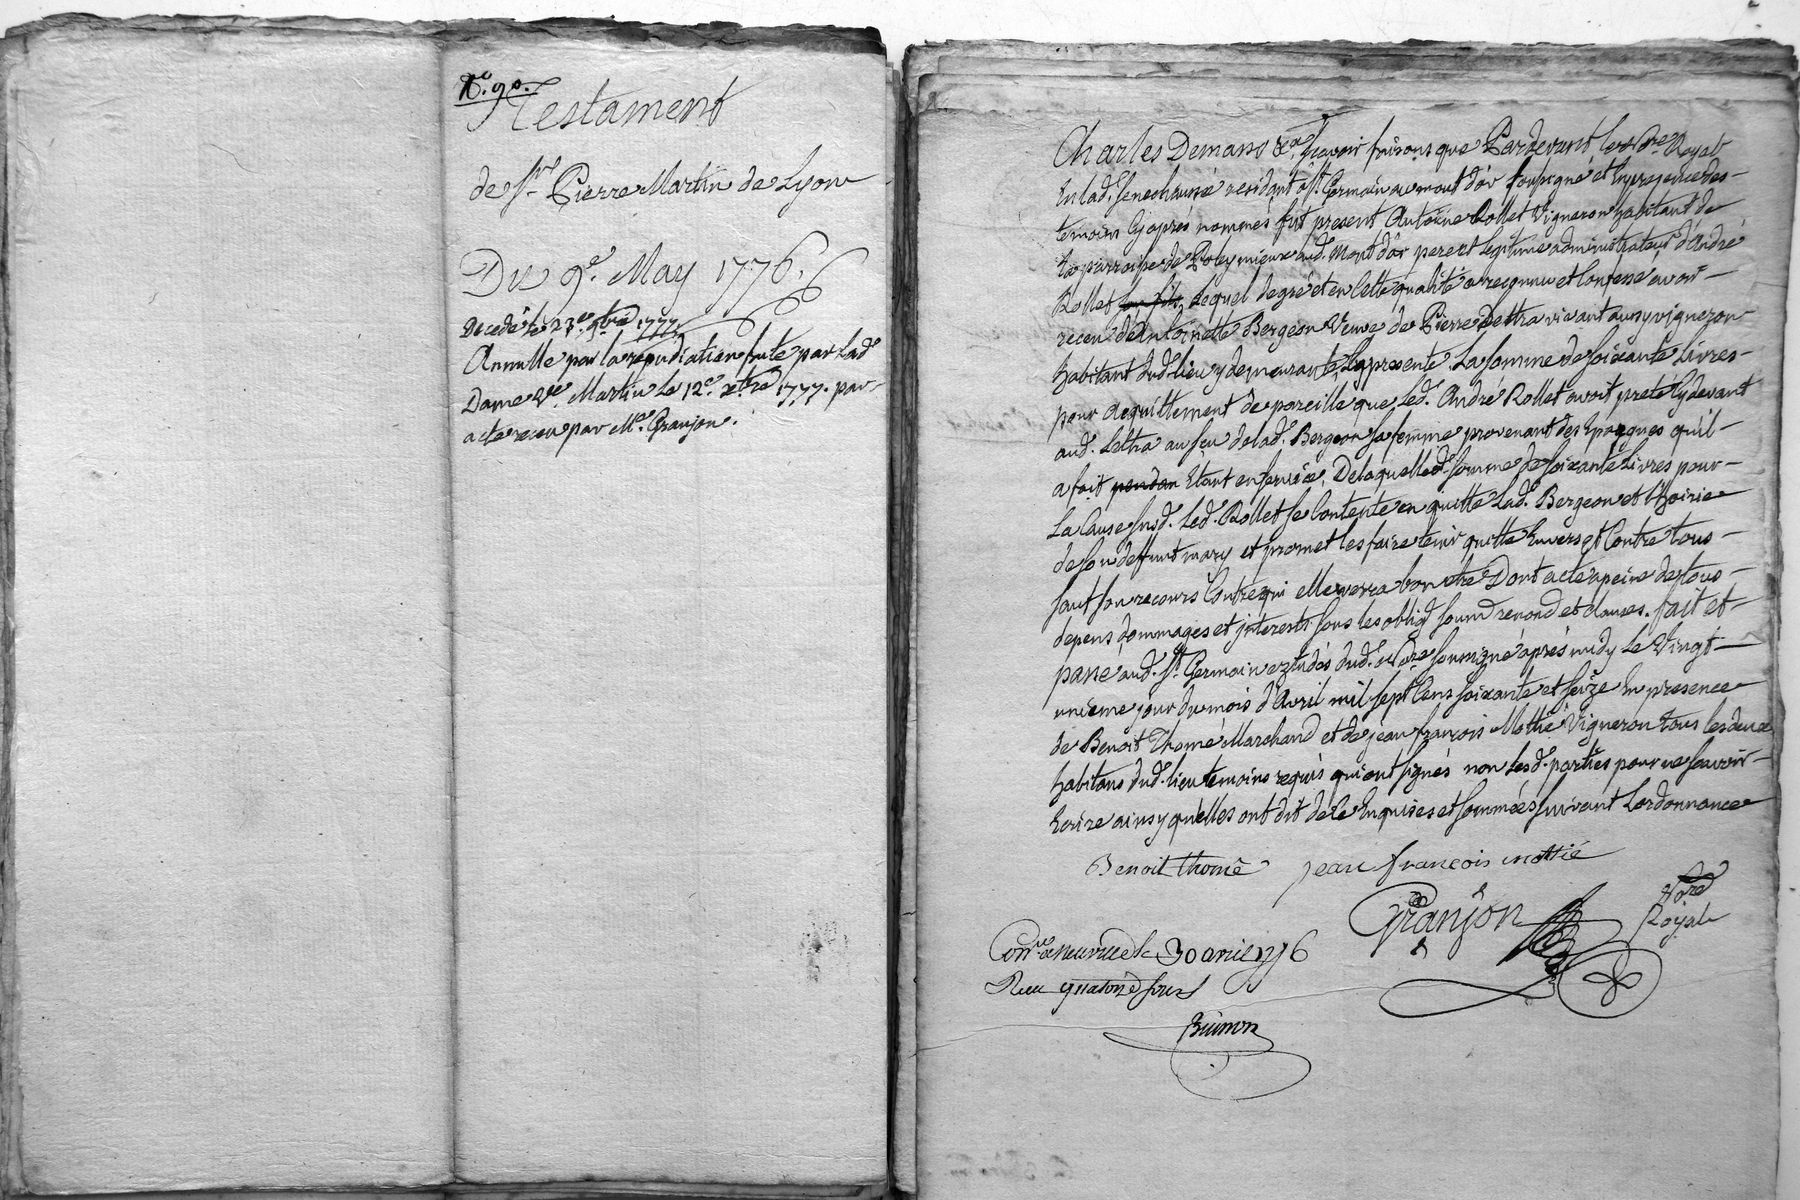 N.º 90.
Testament
de Sr. Pierre Martin de Lyon
Du 9e. May 1776.
Decedé le 23e. 9bre 1777
Annullé par la repudiation faite par Lad.
Dame Ve. Martin le 12e. Xbre 1777. par
acte receu par Me. Granjon.
Charles Demans &a. Sçavoir faisons que Pardevant le Nore Royal
en lad. Senechaussée residant à St. Germain au mont d'or soussigné et en presence des
temoins cy après nommés fut present Antoine Rollet Vigneron habitant de
la parroisse de Poleymieux aud. Mont d'or pere et legitime administrateur d'André
Rollet son fils, Lequel de gré et en cette qualité a reconnu et confessé avoir
receu d'Antoinette Bergeon Veuve de Pierre Dettra vivant aussy vigneron
habitant dud. lieu y demeurante La presente La somme de soixante Livres
pour acquittement de pareille que led. André Rollet avoit preté cy devant
aud. Letra au feu de lad. Bergeon sa femme provenant des Epargnes qu'il
a fait pendan étant en service, De laquelle d. somme de soixante Livres pour
La Cause susd. Led. Rollet se contente en quitte Lad. Bergeon et l'hoirie
de son deffunt mary et promet les faire tenir quitte Envers et Contre tous
sauf son recours Contre qui elle verra bon etre Dont acte a peine de tous
depens, dommages et interests sous les oblig. soum. renond. et clauses. fait et
passé aud. St. Germain etude dud. Nore soussigné après midy Le Vingt
unieme jour du mois d'Avril mil sept Cens soixante et seize En presence
de Benoit Thomé Marchand et de jean françois Mottié Vigneron tous les deux
habitans dud. lieu temoins requis qui ont signés non Lesd. parties pour ne sçavoir
Ecrire ainsy qu'elles ont dit de ce Enquises et sommées suivant Lordonnance
Benoit thomé jean francois mottié
Granjon Nore
Royal
Conlé. a neuville le 30 avril 1776
Receu quatorze sous